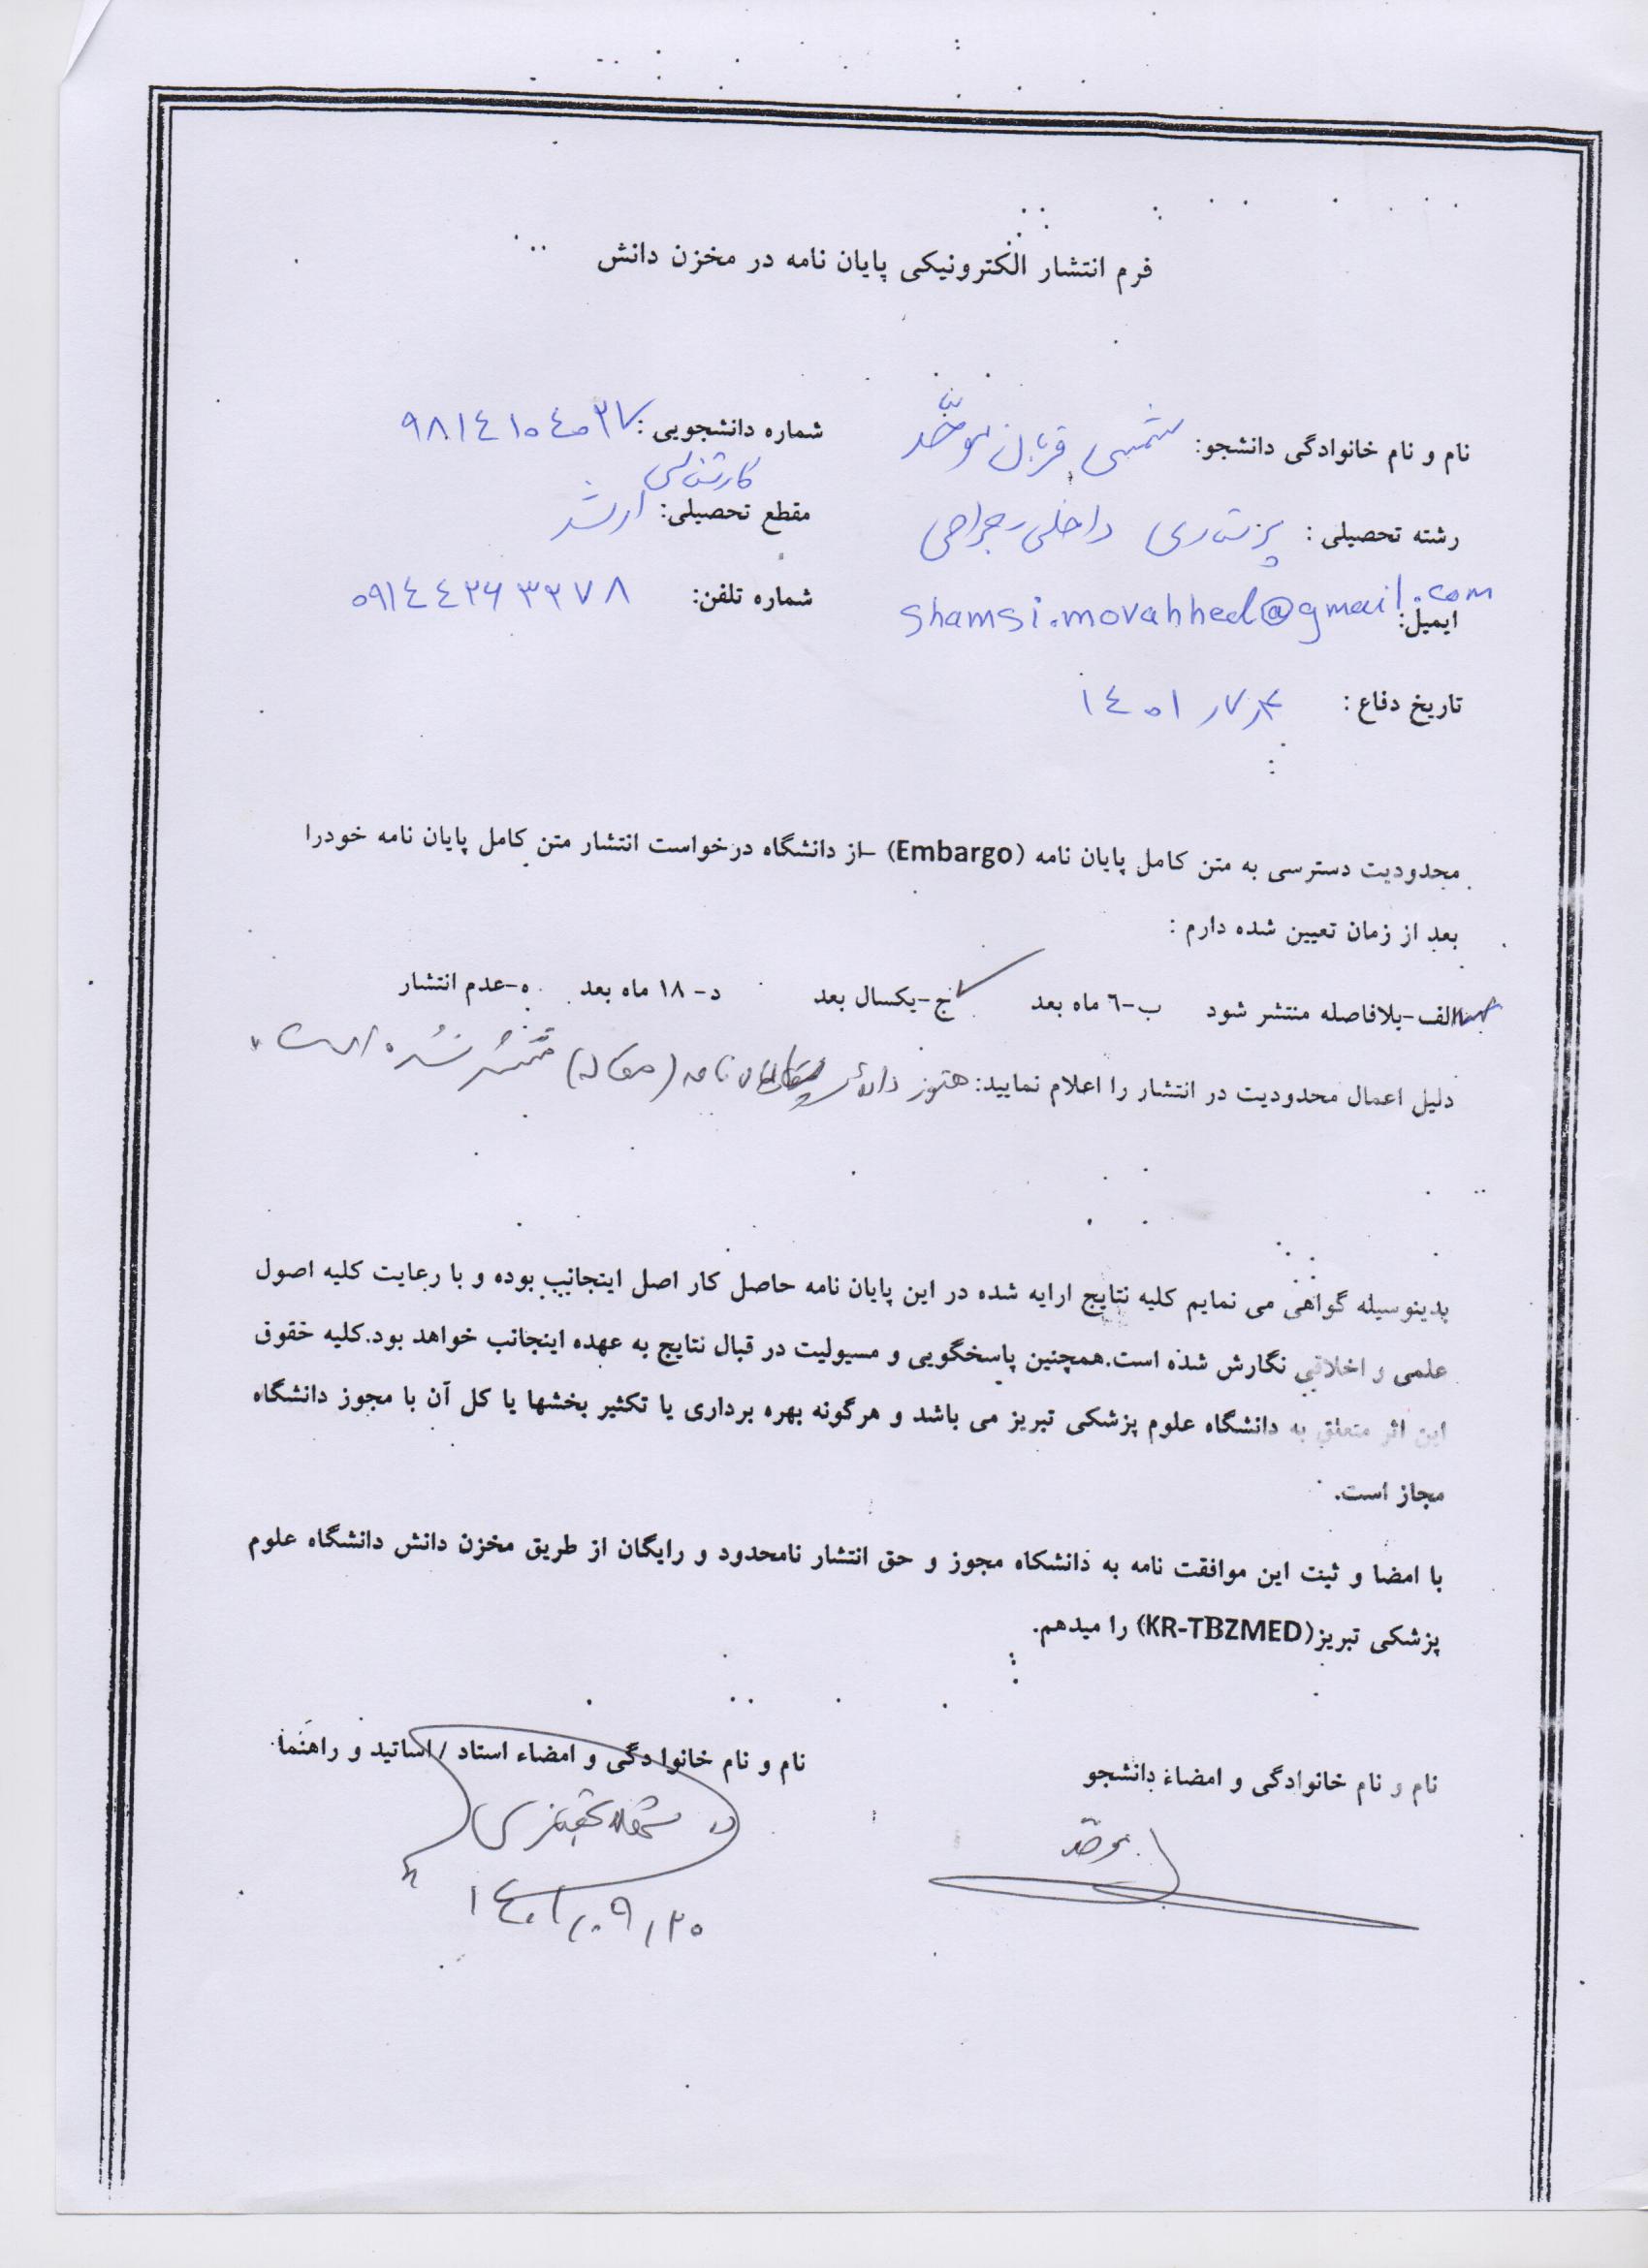 فرم انتشار الکترونیکی پایان نامه در مخزن دانش
نام و نام خانوادگی دانشجو: شمسی قربان موحّد شماره دانشجویی: ۹۸۱٤۱۰٤۰۲۷
رشته تحصیلی : پرستاری داخلی-جراحی مقطع تحصیلی: کارشناسی ارشد
ایمیل: shamsi.movahhed@gmail.com شماره تلفن: ۰۹۱٤٤۲۶۳۲۷۸
تاریخ دفاع : ۱٤۰۱
محدودیت دسترسی به متن کامل پایان نامه (Embargo) –از دانشگاه درخواست انتشار متن کامل پایان نامه خودرا
بعد از زمان تعیین شده دارم :
الف-بلافاصله منتشر شود ب-٦ ماه بعد ج-یکسال بعد د- ۱۸ ماه بعد ه-عدم انتشار
دلیل اعمال محدودیت در انتشار را اعلام نمایید: هنوز نامه (مقاله) منتشر نشده است.
بدینوسیله گواهی می نمایم کلیه نتایج ارایه شده در این پایان نامه حاصل کار اصل اینجانب بوده و با رعایت کلیه اصول
علمی و اخلاقی نگارش شده است.همچنین پاسخگویی و مسیولیت در قبال نتایج به عهده اینجانب خواهد بود.کلیه حقوق
این اثر متعلق به دانشگاه علوم پزشکی تبریز می باشد و هرگونه بهره برداری یا تکثیر بخشها یا کل آن با مجوز دانشگاه
مجاز است.
با امضا و ثبت این موافقت نامه به دانشکاه مجوز و حق انتشار نامحدود و رایگان از طریق مخزن دانش دانشگاه علوم
پزشکی تبریز(KR-TBZMED) را میدهم.
نام و نام خانوادگی و امضاء دانشجو نام و نام خانوادگی و امضاء استاد /اساتید و راهنما
موحد
۱٤۰۱/۰۹/۲۰